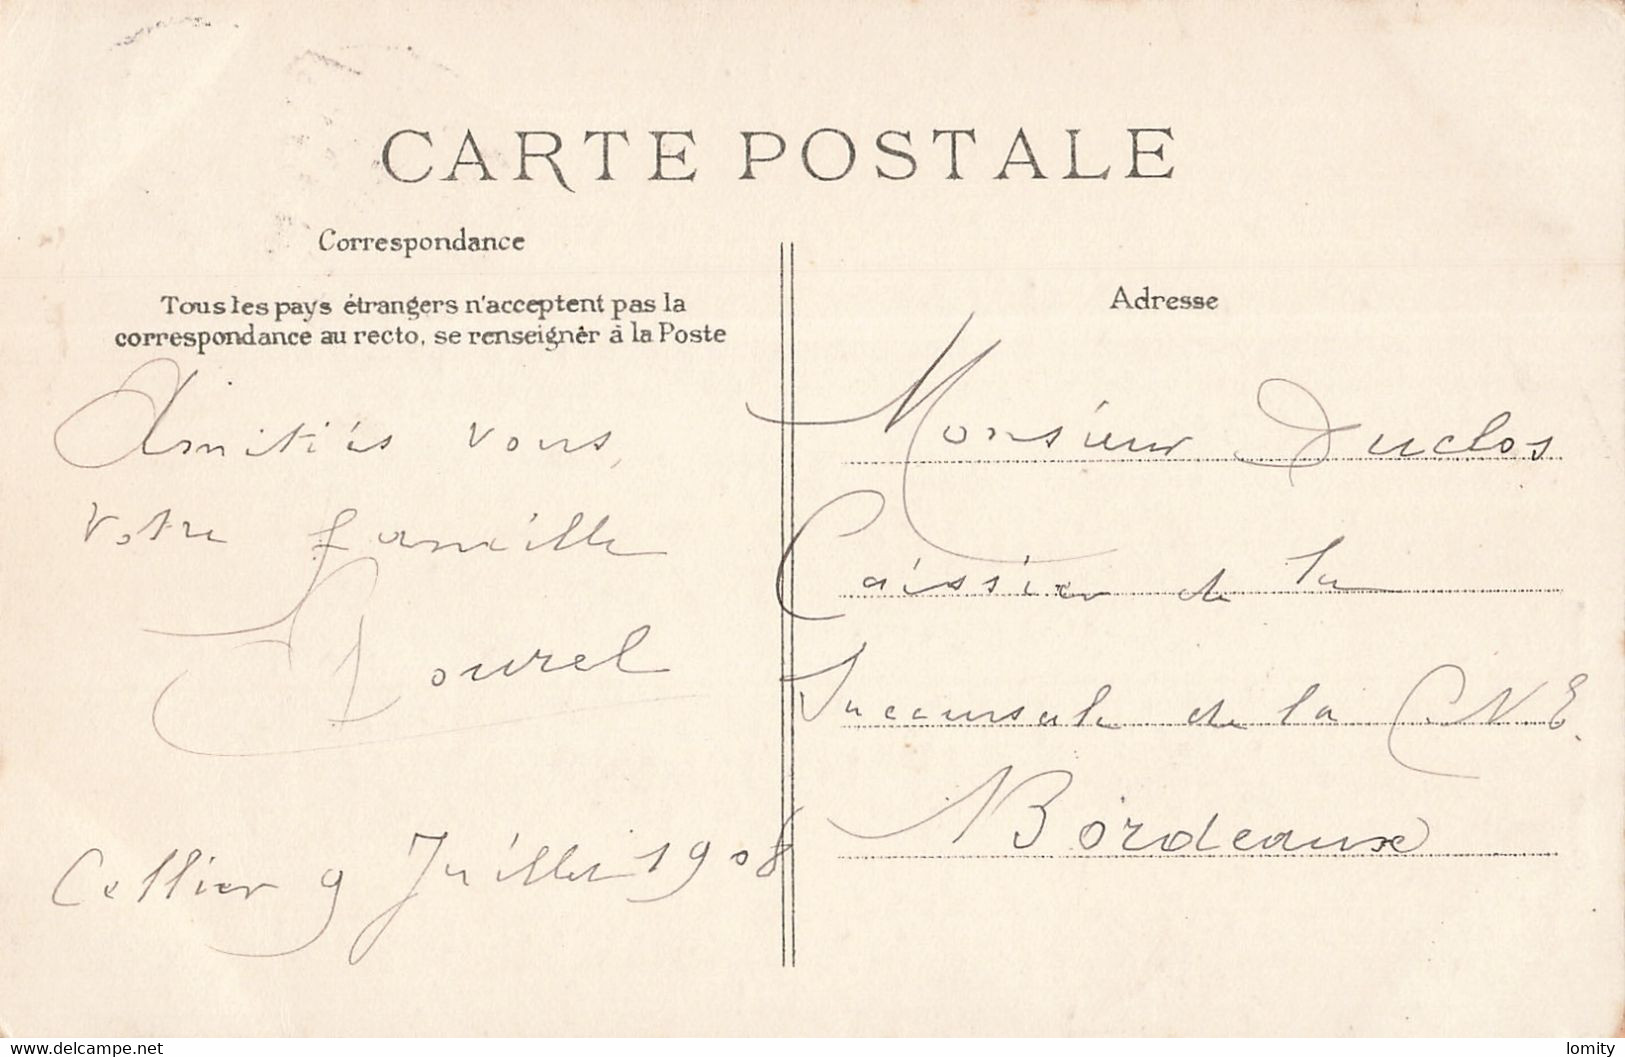 CARTE POSTALE
Correspondance
Tous les pays étrangers n'acceptent pas la
correspondance au recto, se renseigner à la Poste
Amitiés vous,
votre famille
Cellier 9 Juillet 1908
Adresse
Monsieur Duclos
Caissier de la
Succursale de la CNE.
Bordeaux
www.delcampe.net
lomity